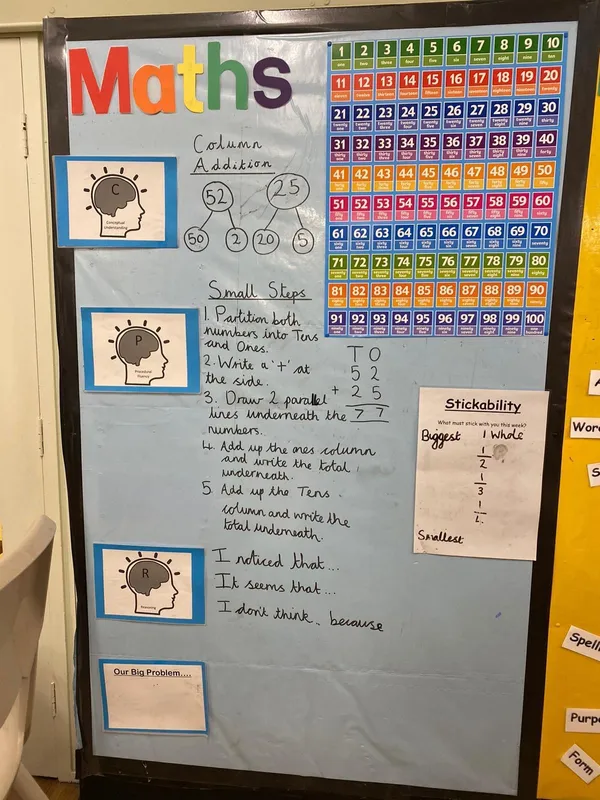 Maths
Column
Addition
52
25
50
2
20
5
C
Conceptual
Understanding
Small Steps
1. Partition both
numbers into Tens
and Ones.
2. Write a '+' at
the side.
3. Draw 2 parallel
lines underneath the
numbers.
4. Add up the ones column
and write the total
underneath.
5. Add up the Tens
column and write the
total underneath.
T O
5 2
+ 2 5
7 7
P
Procedural
Fluency
R
Reasoning
I noticed that...
It seems that...
I don't think.. because
Our Big Problem....
1 2 3 4 5 6 7 8 9 10
one two three four five six seven eight nine ten
11 12 13 14 15 16 17 18 19 20
eleven twelve thirteen fourteen fifteen sixteen seventeen eighteen nineteen twenty
21 22 23 24 25 26 27 28 29 30
twenty one twenty two twenty three twenty four twenty five twenty six twenty seven twenty eight twenty nine thirty
31 32 33 34 35 36 37 38 39 40
thirty one thirty two thirty three thirty four thirty five thirty six thirty seven thirty eight thirty nine forty
41 42 43 44 45 46 47 48 49 50
forty one forty two forty three forty four forty five forty six forty seven forty eight forty nine fifty
51 52 53 54 55 56 57 58 59 60
fifty one fifty two fifty three fifty four fifty five fifty six fifty seven fifty eight fifty nine sixty
61 62 63 64 65 66 67 68 69 70
sixty one sixty two sixty three sixty four sixty five sixty six sixty seven sixty eight sixty nine seventy
71 72 73 74 75 76 77 78 79 80
seventy one seventy two seventy three seventy four seventy five seventy six seventy seven seventy eight seventy nine eighty
81 82 83 84 85 86 87 88 89 90
eighty one eighty two eighty three eighty four eighty five eighty six eighty seven eighty eight eighty nine ninety
91 92 93 94 95 96 97 98 99 100
ninety one ninety two ninety three ninety four ninety five ninety six ninety seven ninety eight ninety nine one hundred
Stickability
What must stick with you this week?
Biggest 1 Whole
1
2
1
3
1
Smallest
A
Word
S
Spelli
Purpo
Form